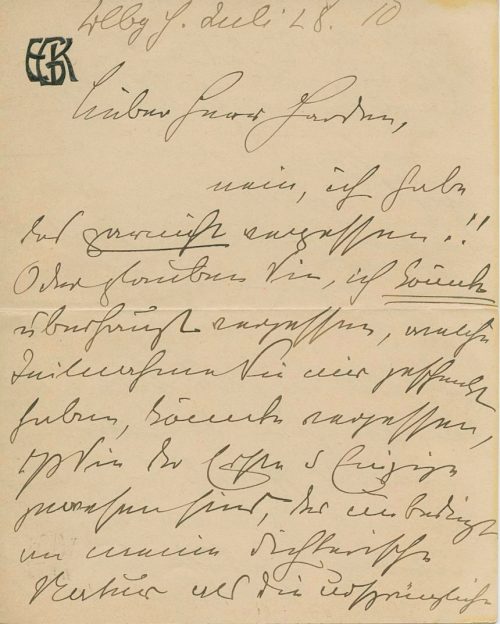 Juli 28. 10
EBK
Lieber Herr Harden,
nein, ich habe
das garnicht vergessen.!!
Oder glauben Sie, ich könnte
überhaupt vergessen, welche
Teilnahme Sie mir geschenkt
haben, könnte vergessen,
daß Sie der Erste & Einzige
gewesen sind, der unbedingt
an meine dichterische
Natur als die ursprüngliche